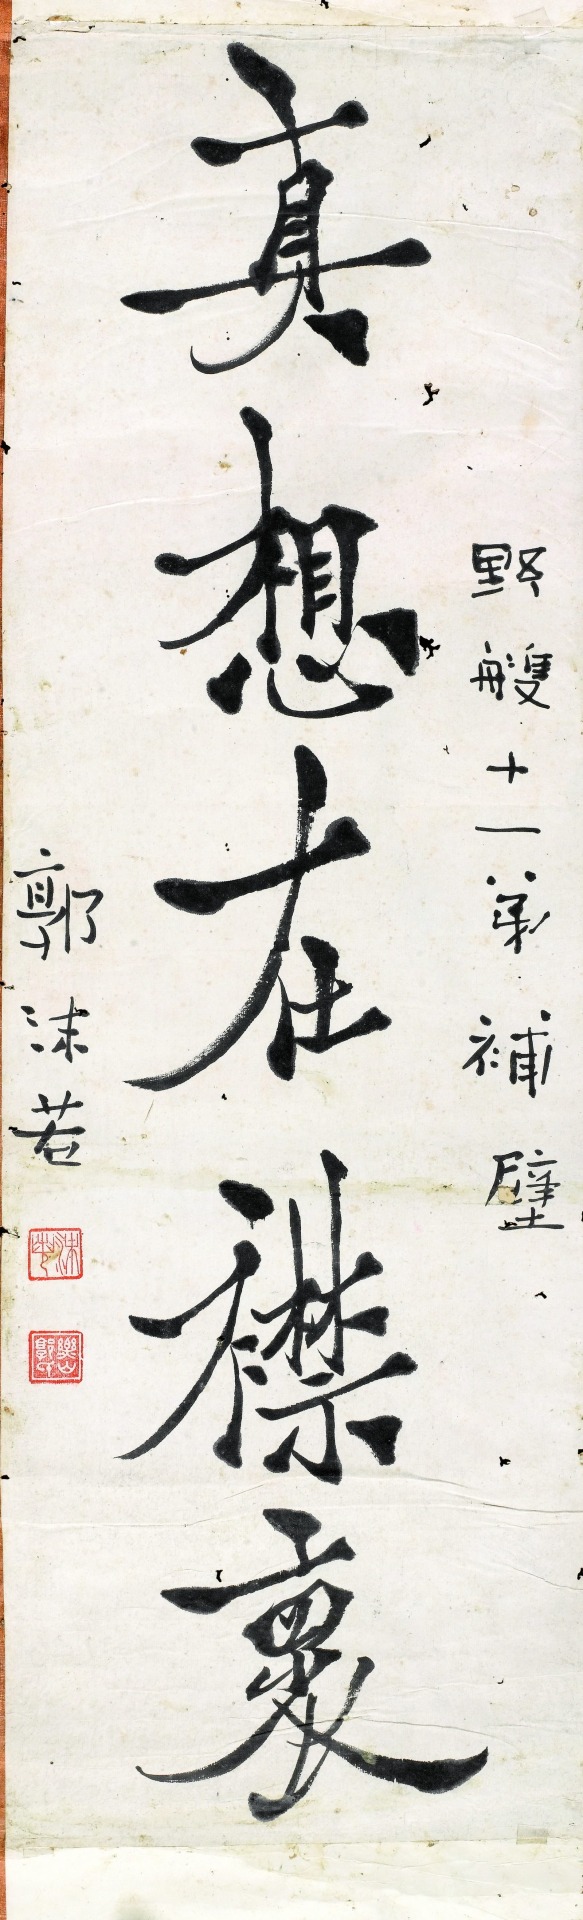 野艘十一弟補壁
真想在襟裏
郭沫若
沫若
樂山郭氏